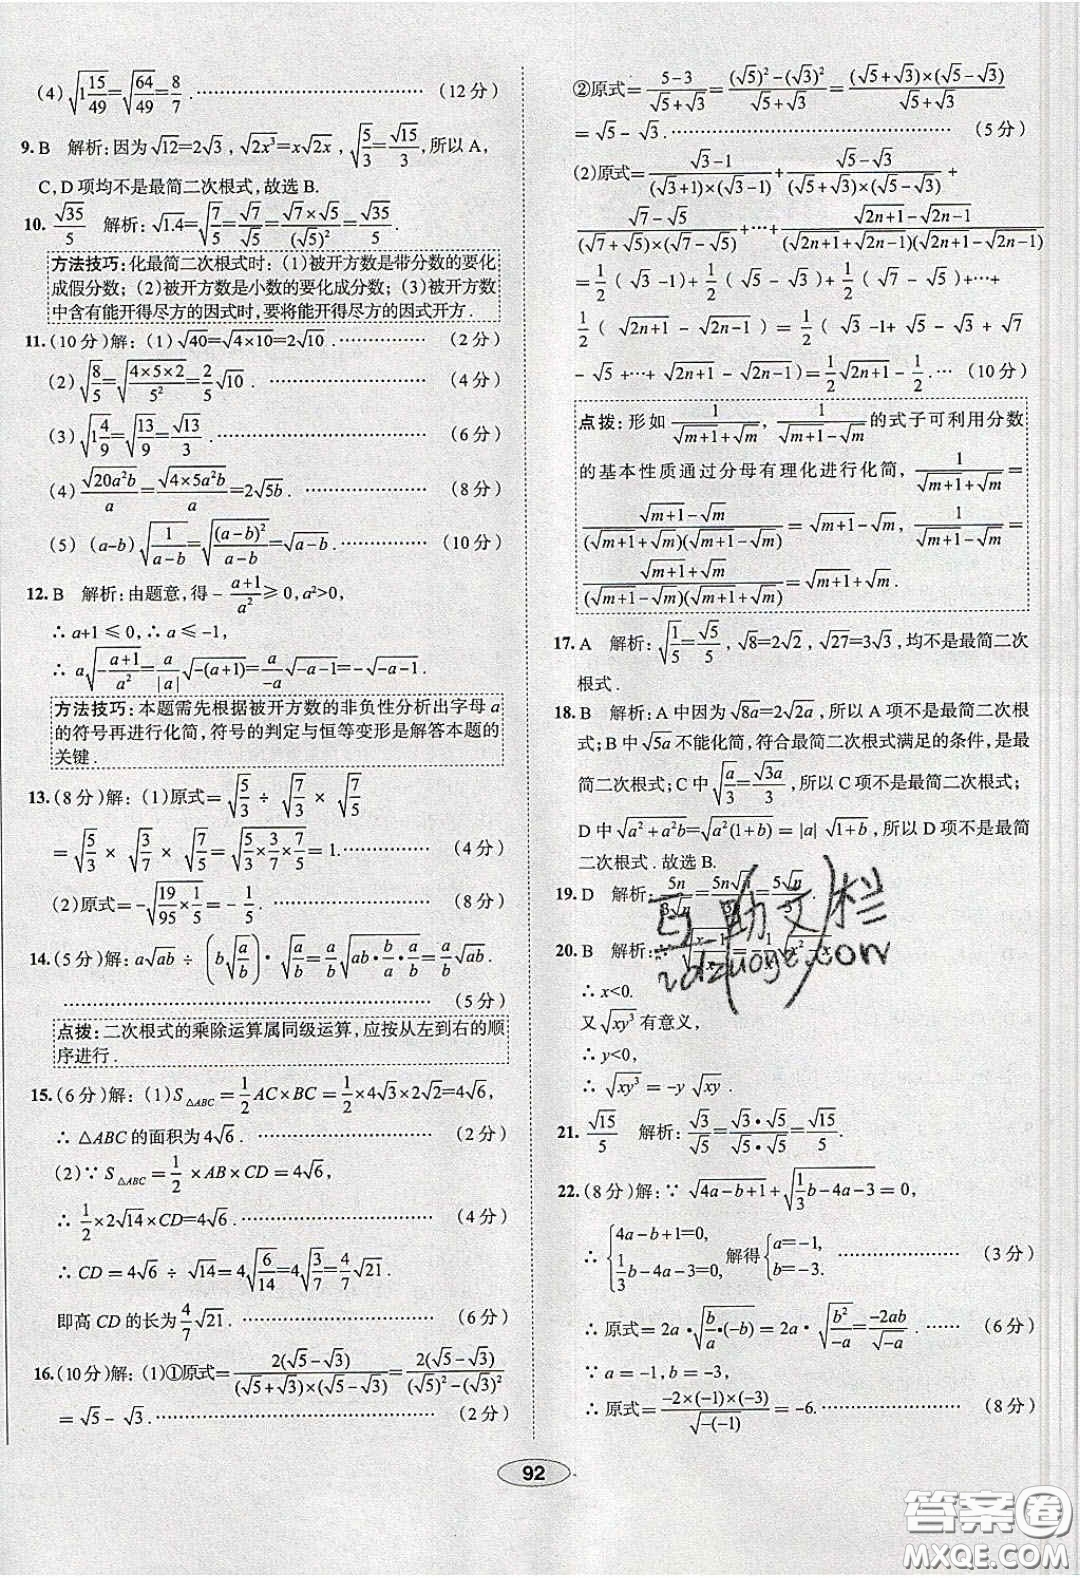 (4)√(1 15/49)=√(64/49)=8/7 .……………………(12分)
9.B 解析:因为√12=2√3,√(2x³)=x√(2x),√(5/3)=√15/3,所以A,
C,D项均不是最简二次根式,故选B.
10. √35/5 解析:√1.4=√(7/5)=√7/√5=(√7×√5)/(√5)²=√35/5.
方法技巧:化最简二次根式时:(1)被开方数是带分数的要化
成假分数;(2)被开方数是小数的要化成分数;(3)被开方数
中含有能开得尽方的因式时,要将能开得尽方的因式开方.
11.(10分)解:(1)√40=√(4×10)=2√10.……………(2分)
(2)√(8/5)=√((4×5×2)/5²)=2/5√10 .……………………(4分)
(3)√(1 4/9)=√(13/9)=√13/3 .……………………(6分)
(4)√(20a²b)/a=√(4×5a²b)/a=2√(5b) .……………………(8分)
(5)(a-b)√(1/(a-b))=√((a-b)²/(a-b))=√(a-b).……………(10分)
12.B 解析:由题意,得-(a+1)/a²≥0,a²>0,
∴a+1≤0,∴a≤-1,
∴a√(-(a+1)/a²)=a/|a|√(-(a+1))=a/-a√(-a-1)=-√(-a-1).
方法技巧:本题需先根据被开方数的非负性分析出字母a
的符号再进行化简,符号的判定与恒等变形是解答本题的
关键.
13.(8分)解:(1)原式=√(5/3)÷√(7/3)×√(7/5)
=√(5/3)×√(3/7)×√(7/5)=√(5/3×3/7×7/5)=1.……………(4分)
(2)原式=-√(19/95×1/5)=-1/5.……………………(8分)
14.(5分)解:a√(ab)÷(b√(a/b))·√(a/b)=a/b√(ab·b/a·a/b)=a/b√(ab).
……………………………………(5分)
点拨:二次根式的乘除运算属同级运算,应按从左到右的顺
序进行.
15.(6分)解:(1)S△ABC=1/2AC×BC=1/2×4√3×2√2=4√6,
∴△ABC的面积为4√6.……………………(2分)
(2)∵S△ABC=1/2×AB×CD=4√6,
∴1/2×2√14×CD=4√6.……………………(4分)
∴CD=4√6÷√14=4√(6/14)=4√(3/7)=4/7√21.
即高CD的长为4/7√21.……………………(6分)
16.(10分)解:(1)①原式=2(√5-√3)/((√5+√3)×(√5-√3))=2(√5-√3)/((√5)²-(√3)²)
=√5-√3.……………………………(2分)
②原式=(5-3)/(√5+√3)=((√5)²-(√3)²)/(√5+√3)=((√5+√3)×(√5-√3))/(√5+√3)
=√5-√3.……………………………(5分)
(2)原式=(√3-1)/((√3+1)×(√3-1))+(√5-√3)/((√5+√3)×(√5-√3))+
(√7-√5)/((√7+√5)×(√7-√5))+…+(√(2n+1)-√(2n-1))/((√(2n+1)+√(2n-1))(√(2n+1)-√(2n-1)))
=1/2+1/2(√3-1)+1/2(√5-√3)+1/2(√7-√5)+…+
1/2(√(2n+1)-√(2n-1))=1/2(√3-1+√5-√3+√7
-√5+…+√(2n+1)-√(2n-1))=1/2√(2n+1)-1/2.…(10分)
点拨:形如1/(√(m+1)+√m),1/(√(m+1)-√m)的式子可利用分数
的基本性质通过分母有理化进行化简,1/(√(m+1)+√m)=
(√(m+1)-√m)/((√(m+1)+√m)(√(m+1)-√m))=√(m+1)-√m,1/(√(m+1)-√m)=
(√(m+1)+√m)/((√(m+1)-√m)(√(m+1)+√m))=√(m+1)+√m.
17.A 解析:√(1/5)=√5/5,√8=2√2,√27=3√3,均不是最简二次
根式.
18.B 解析:A中因为√(8a)=2√(2a),所以A项不是最简二次根
式;B中√(5a)不能化简,符合最简二次根式满足的条件,是最
简二次根式;C中√(a/3)=√(3a)/3,所以C项不是最简二次根式;
D中√(a²+a²b)=√(a²(1+b))=|a|√(1+b),所以D项不是最简
二次根式.故选B.
19.D 解析:5n/3√n=5n√n/3n=5√n/3.
20.B 解析:
∴x<0.
又√(xy³)有意义,
∴y<0,
∴√(xy³)=-y√(xy).
21. √15/5 解析:√3/√5=(√3·√5)/(√5·√5)=√15/5.
22.(8分)解:∵√(4a-b+1)+√(1/3b-4a-3)=0,
∴{4a-b+1=0, 1/3b-4a-3=0, 解得{a=-1, b=-3.……………(3分)
∴原式=2a·√(b/a·(-b))=2a·√(b²/-a)=-2ab/√(-a).……(6分)
∵a=-1,b=-3,
∴原式=(-2×(-1)×(-3))/√(-(-1))=-6.……………(8分)
92
互助文栏
答案圈
MXQE.COM